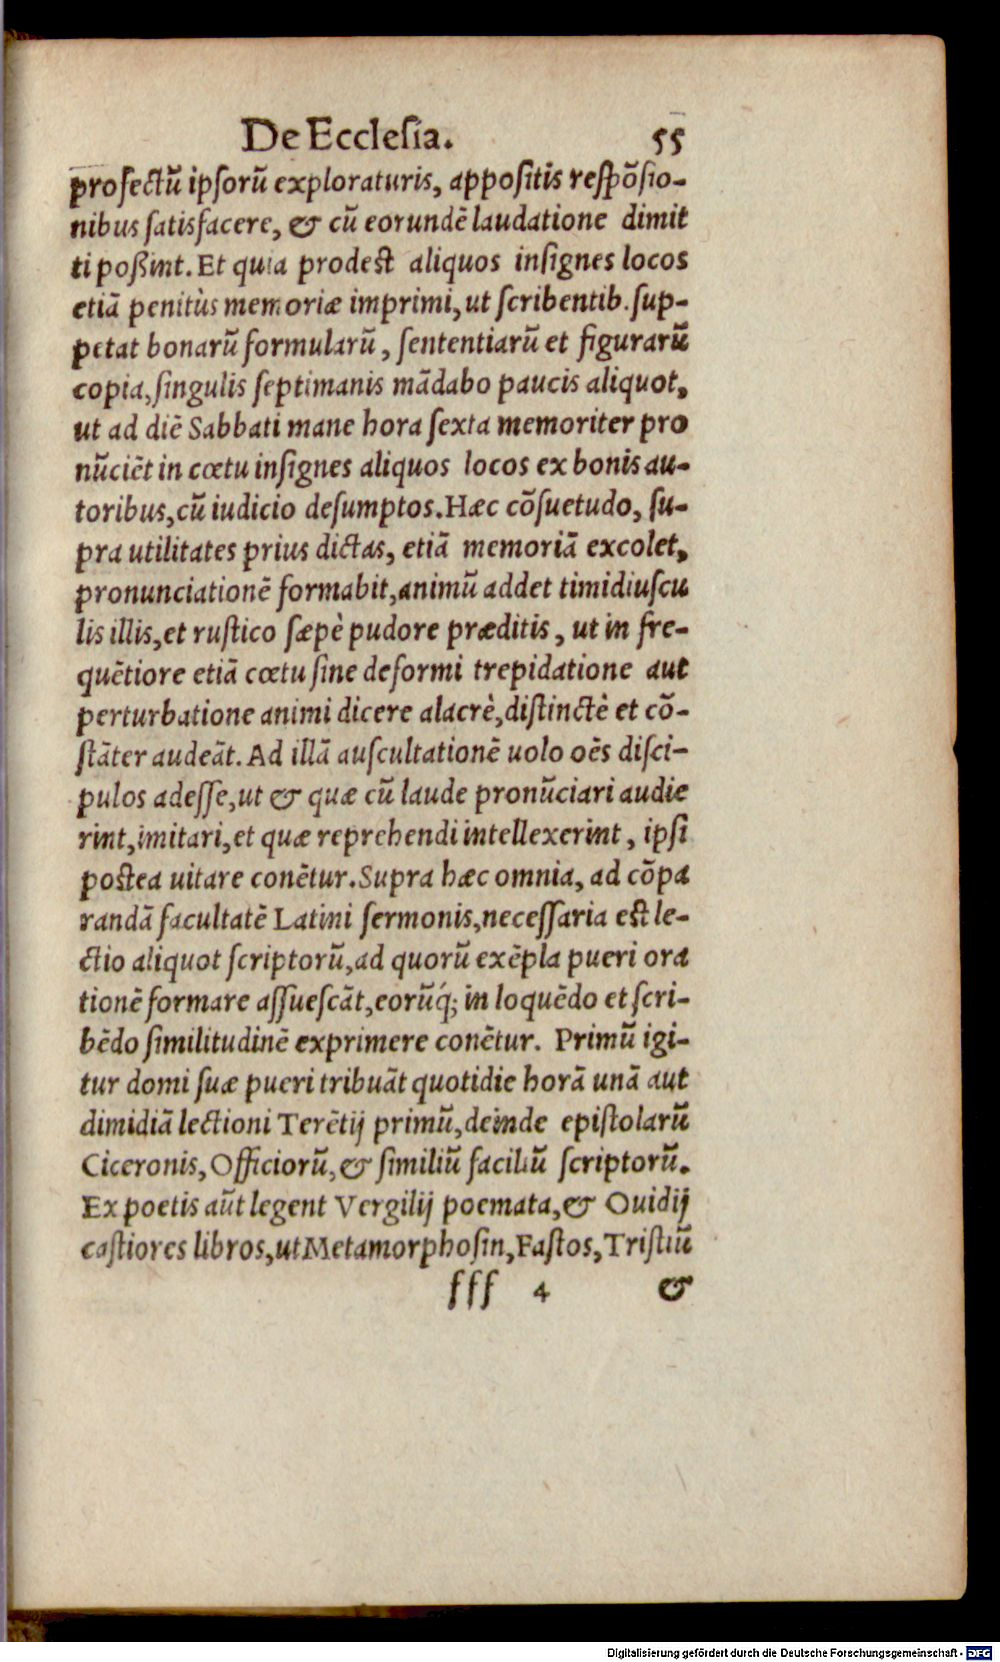 De Ecclesia. 55
profectũ ipsorũ exploraturis, appositis respõsio-
nibus satisfacere, & cũ eorundẽ laudatione dimit
ti poßint. Et quia prodest aliquos insignes locos
etiã penitùs memoriæ imprimi, ut scribentib. sup-
petat bonarũ formularũ, sententiarũ et figurarũ
copia, singulis septimanis mãdabo paucis aliquot,
ut ad diẽ Sabbati mane hora sexta memoriter pro
nũciẽt in cœtu insignes aliquos locos ex bonis au-
toribus, cũ iudicio desumptos. Hæc cõsuetudo, su-
pra utilitates prius dictas, etiã memoriã excolet,
pronunciationẽ formabit, animũ addet timidiuscu
lis illis, et rustico sæpè pudore præditis, ut in fre-
quẽtiore etiã cœtu sine deformi trepidatione aut
perturbatione animi dicere alacrè, distinctè et cõ-
stãter audeãt. Ad illã auscultationẽ uolo oẽs disci-
pulos adesse, ut & quæ cũ laude pronũciari audie
rint, imitari, et quæ reprehendi intellexerint, ipsi
postea uitare conẽtur. Supra hæc omnia, ad cõpa
randã facultatẽ Latini sermonis, necessaria est le-
ctio aliquot scriptorũ, ad quorũ exẽpla pueri ora
tionẽ formare assuescãt, eorũq́; in loquẽdo et scri-
bẽdo similitudinẽ exprimere conẽtur. Primũ igi-
tur domi suæ pueri tribuãt quotidie horã unã aut
dimidiã lectioni Terẽtij primũ, deinde epistolarũ
Ciceronis, Officiorũ, & similiũ faciliũ scriptorũ.
Ex poetis aũt legent Vergilij poemata, & Ouidij
castiores libros, ut Metamorphosin, Fastos, Tristiũ
fff 4 &
Digitalisierung gefördert durch die Deutsche Forschungsgemeinschaft - DFG